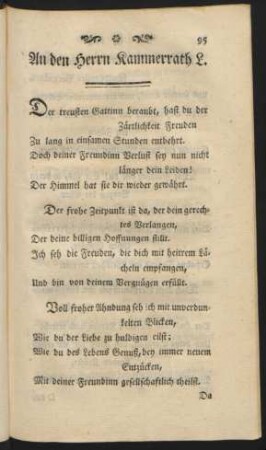 95
An den Herrn Kammerrath L.
Der treusten Gattinn beraubt, hast du der
Zärtlichkeit Freuden
Zu lang in einsamen Stunden entbehrt.
Doch deiner Freundinn Verlust sey nun nicht
länger dein Leiden!
Der Himmel hat sie dir wieder gewährt.
Der frohe Zeitpunkt ist da, der dein gerech-
tes Verlangen,
Der deine billigen Hoffnungen stillt.
Ich seh die Freuden, die dich mit heitrem Lä-
cheln empfangen,
Und bin von deinem Vergnügen erfüllt.
Voll froher Ahndung seh ich mit unverdun-
kelten Blicken,
Wie du der Liebe zu huldigen eilst;
Wie du des Lebens Genuß, bey immer neuem
Entzücken,
Mit deiner Freundinn gesellschaftlich theilst.
Da